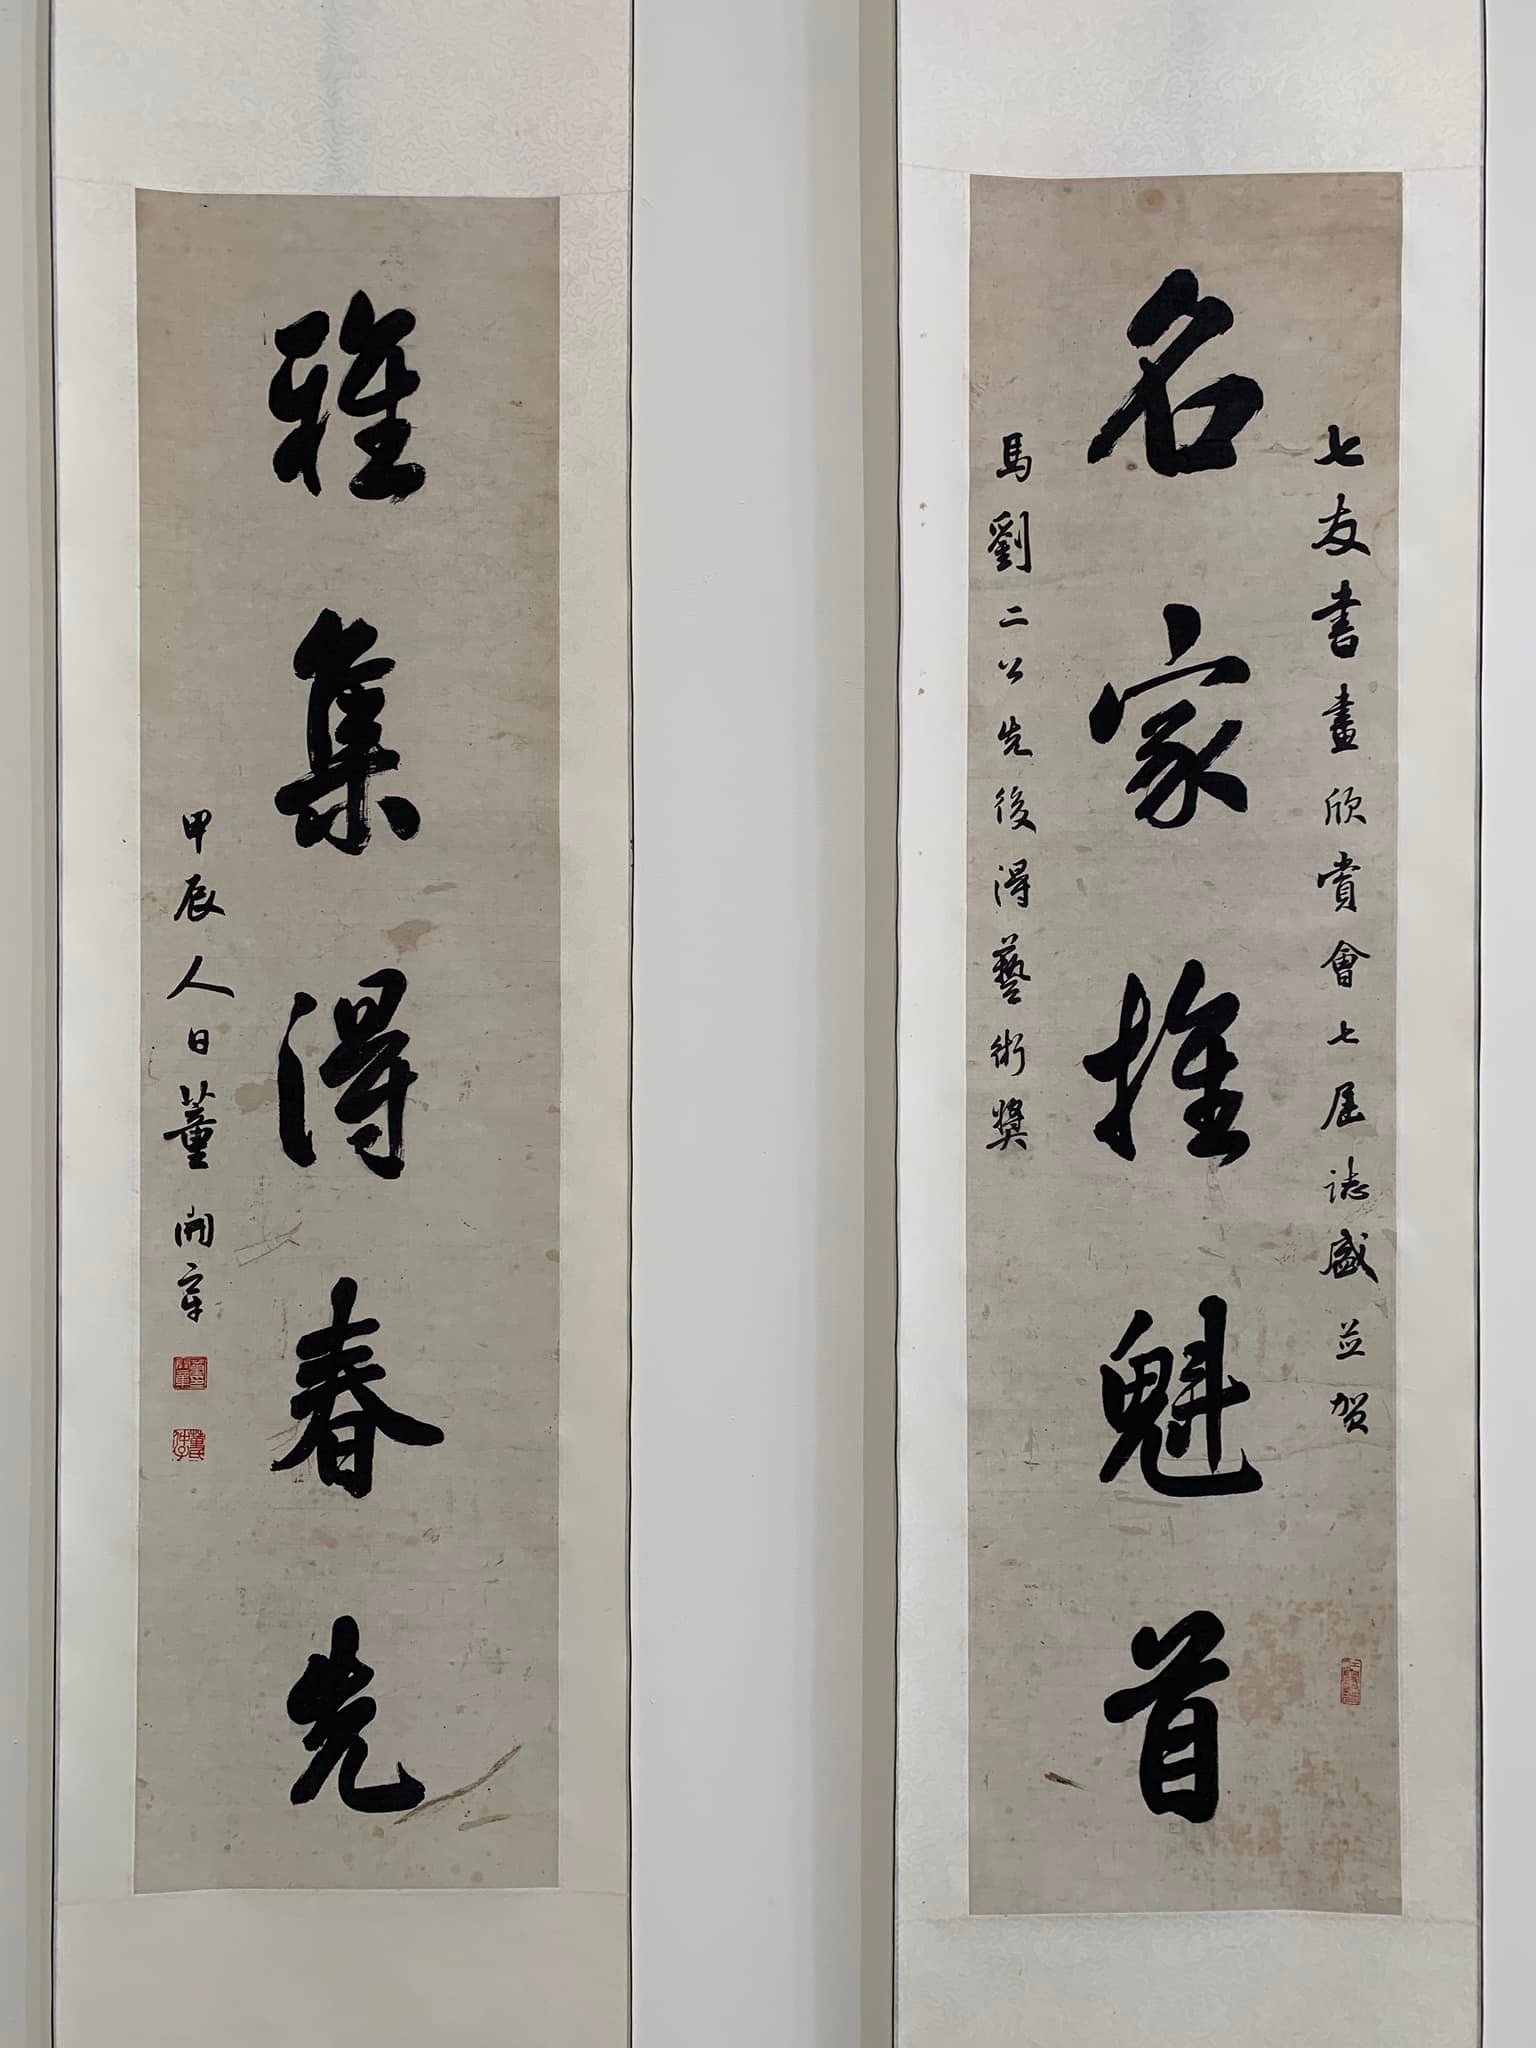 七友書畫欣賞會七屆誌盛並賀
名家推魁首
馬劉二公先後得藝術獎
雅集得春先
甲辰人日董開章